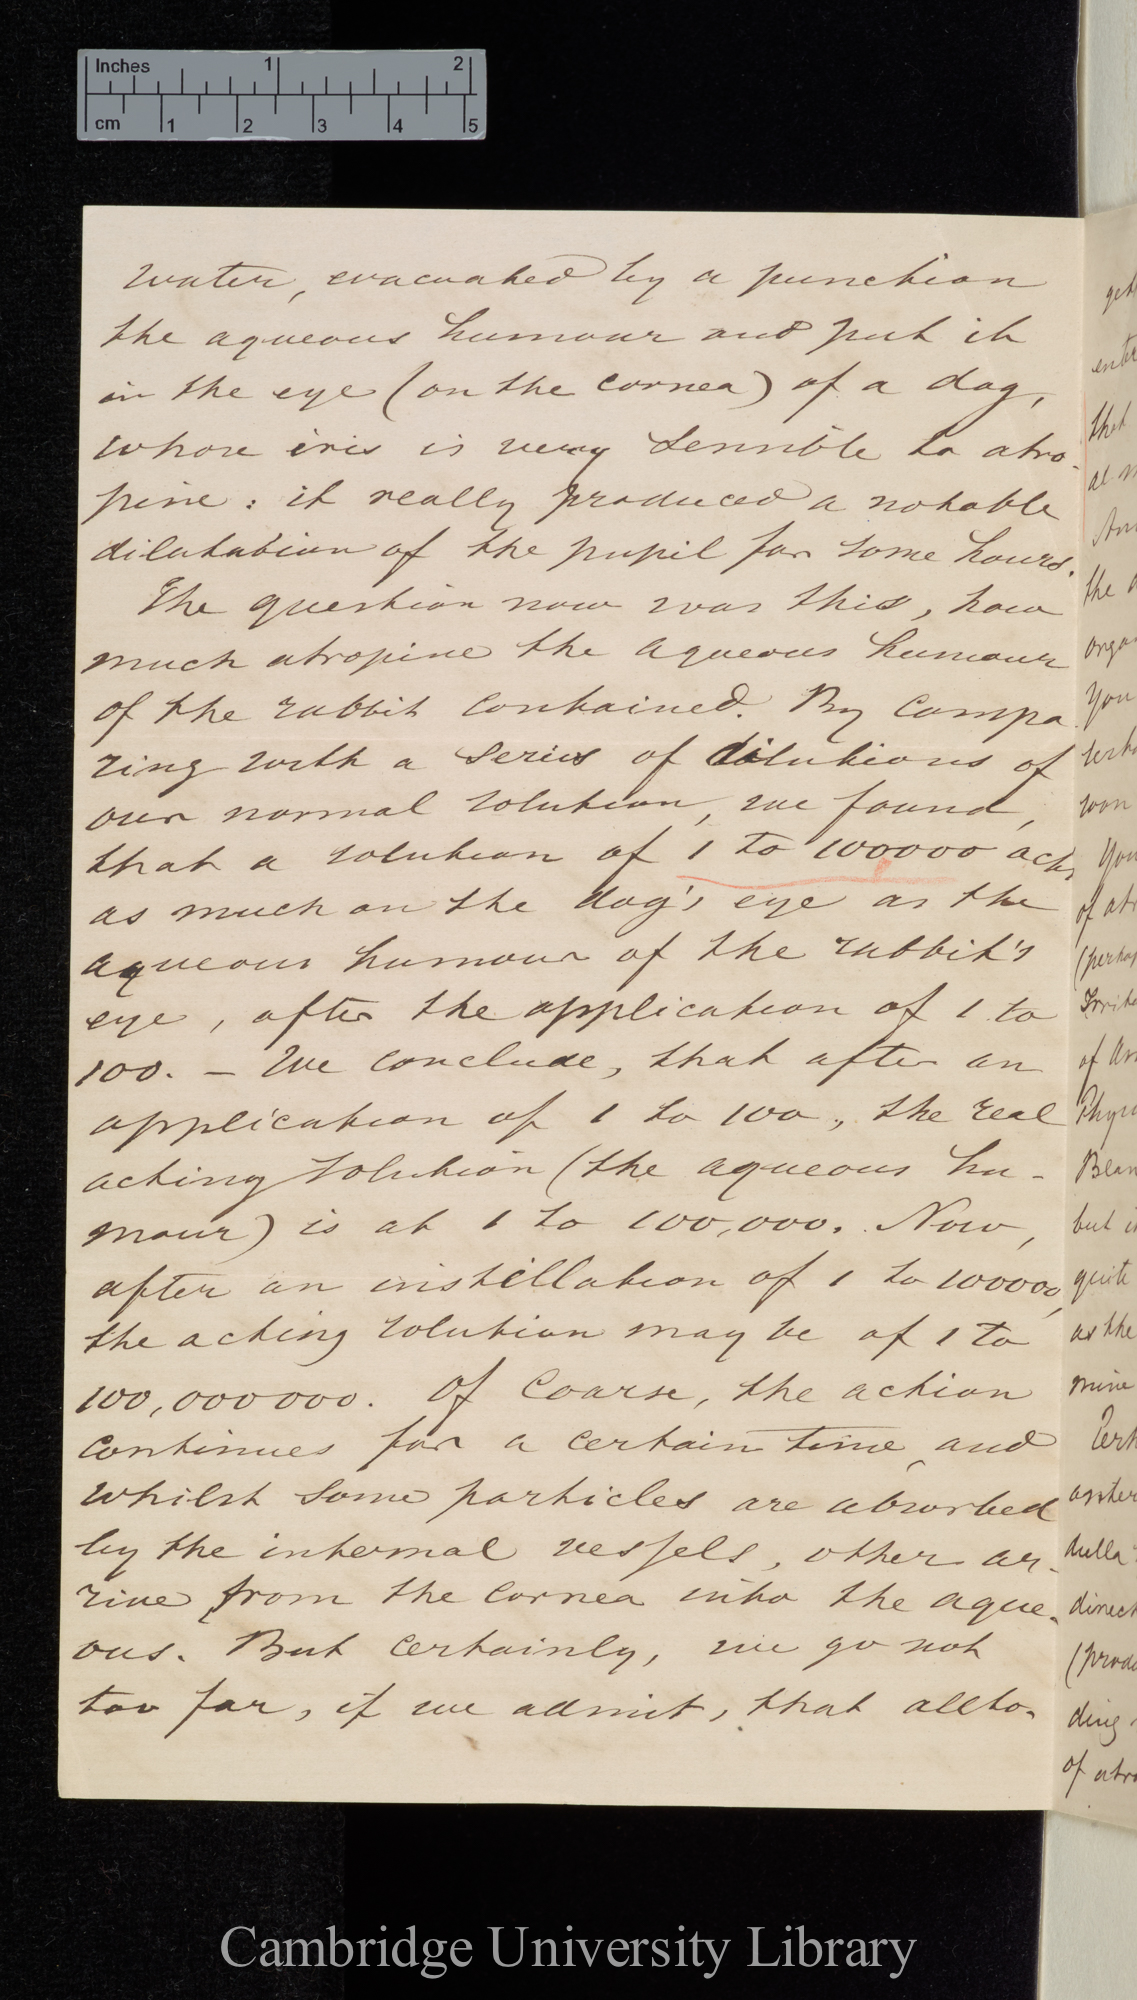 Inches 1 2
cm 1 2 3 4 5
water, evacuated by a punction
the aqueous humour and put it
in the eye (on the cornea) of a dog,
whose iris is very sensible to atro-
pine: it really produced a notable
dilatation of the pupil for some hours.
The question now was this, how
much atropine the aqueous humour
of the rabbit contained. By compa
ring with a series of dilutions of
our normal solution, we found,
that a solution of 1 to 100000 acts
as much on the dog's eye as the
aqueous humour of the rabbit's
eye, after the application of 1 to
100. – We conclude, that after an
application of 1 to 100, the real
acting solution (the aqueous hu-
mour) is at 1 to 100,000. Now,
after an instillation of 1 to 100000,
the acting solution may be of 1 to
100,000000. Of coarse, the action
continues for a certain time, and
whilst some particles are absorbed
by the internal vessels, other ar-
rive from the cornea into the aque-
ous. But certainly, we go not
too far, if we admit, that allto-
that
the
You
You
(perhap
but
quite
as the
mine
direct
of atro
Cambridge University Library